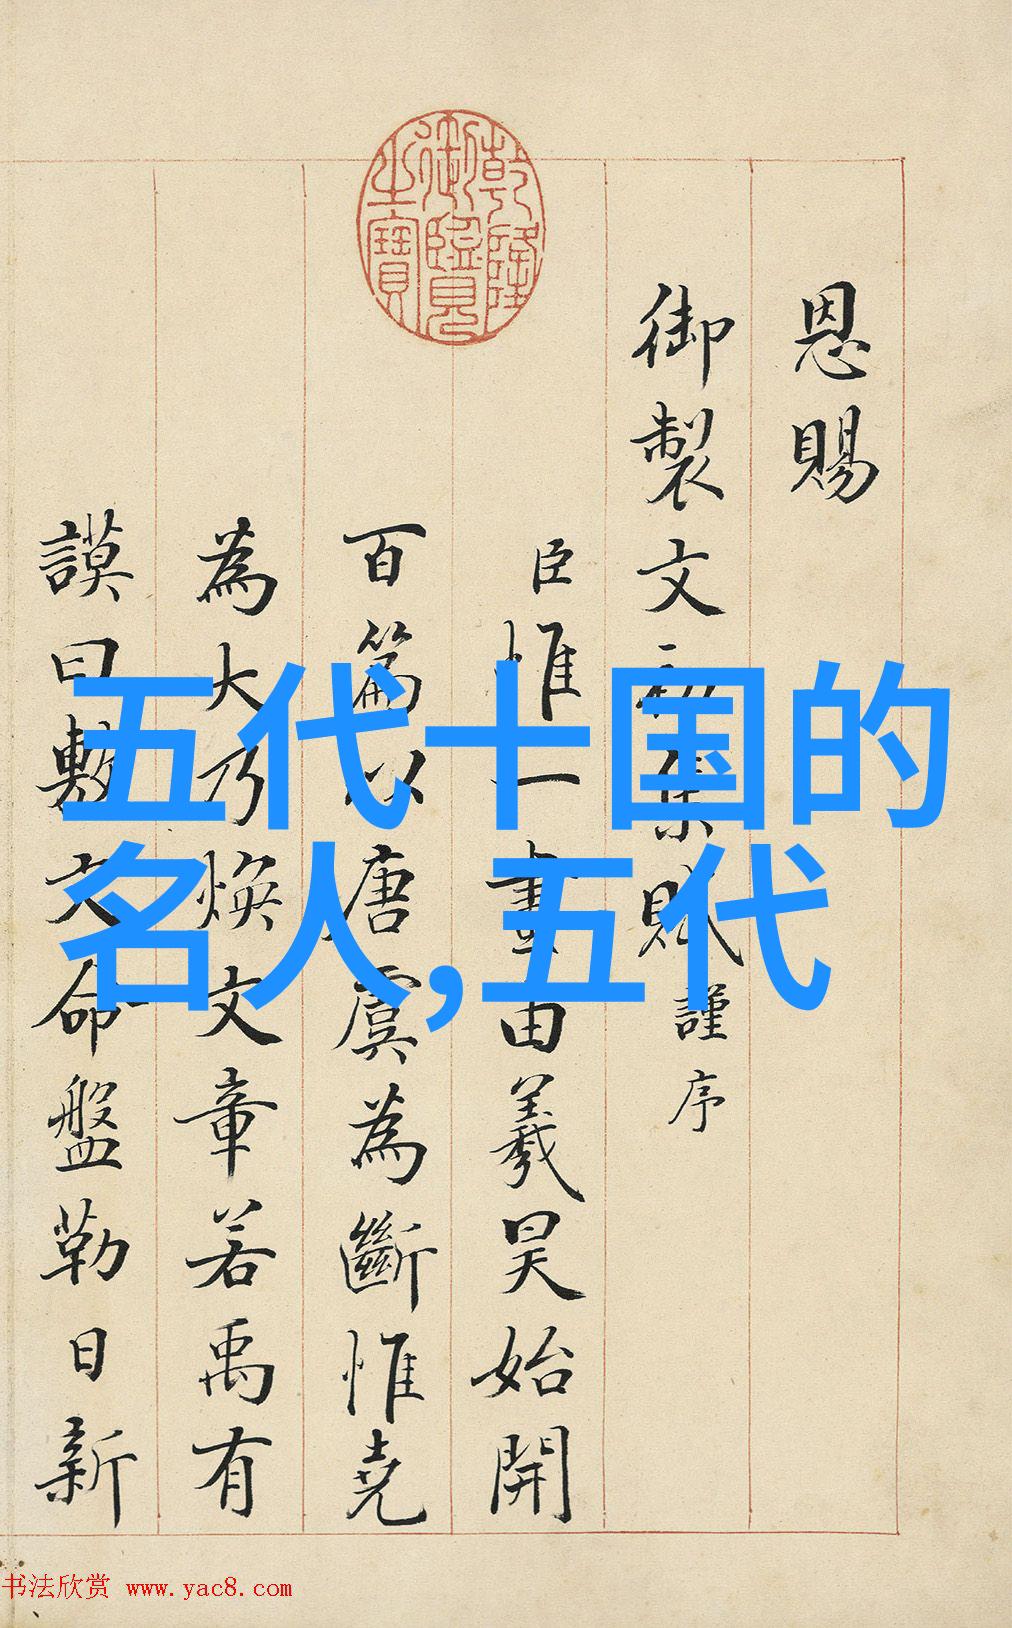 恩賜
御製文初集賦謹序
臣惟一畫由羲昊始開
百篇以唐虞為斷惟堯
為大乃煥文章若禹有
謨曰敷文命盤勒日新
乾隆御覽之寶
五代十国的
名人,五代
书法欣赏 www.yac8.com